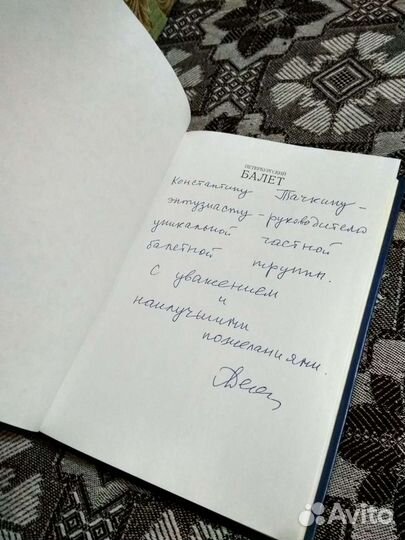 ПЕТЕРБУРГСКИЙ
БАЛЕТ
Константину Тачкину –
энтузиасту – руководителю
уникальной частной
балетной труппы.
С уважением
и
наилучшими
пожеланиями.
Avito